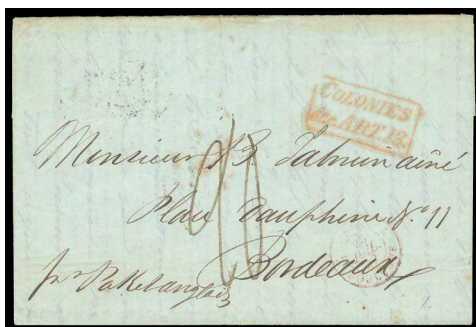 COLONIES
&c. ART. 12.
Monsieur J.B. ainé
Place Dauphine N.o 11
Bordeaux
pr Paketanglais